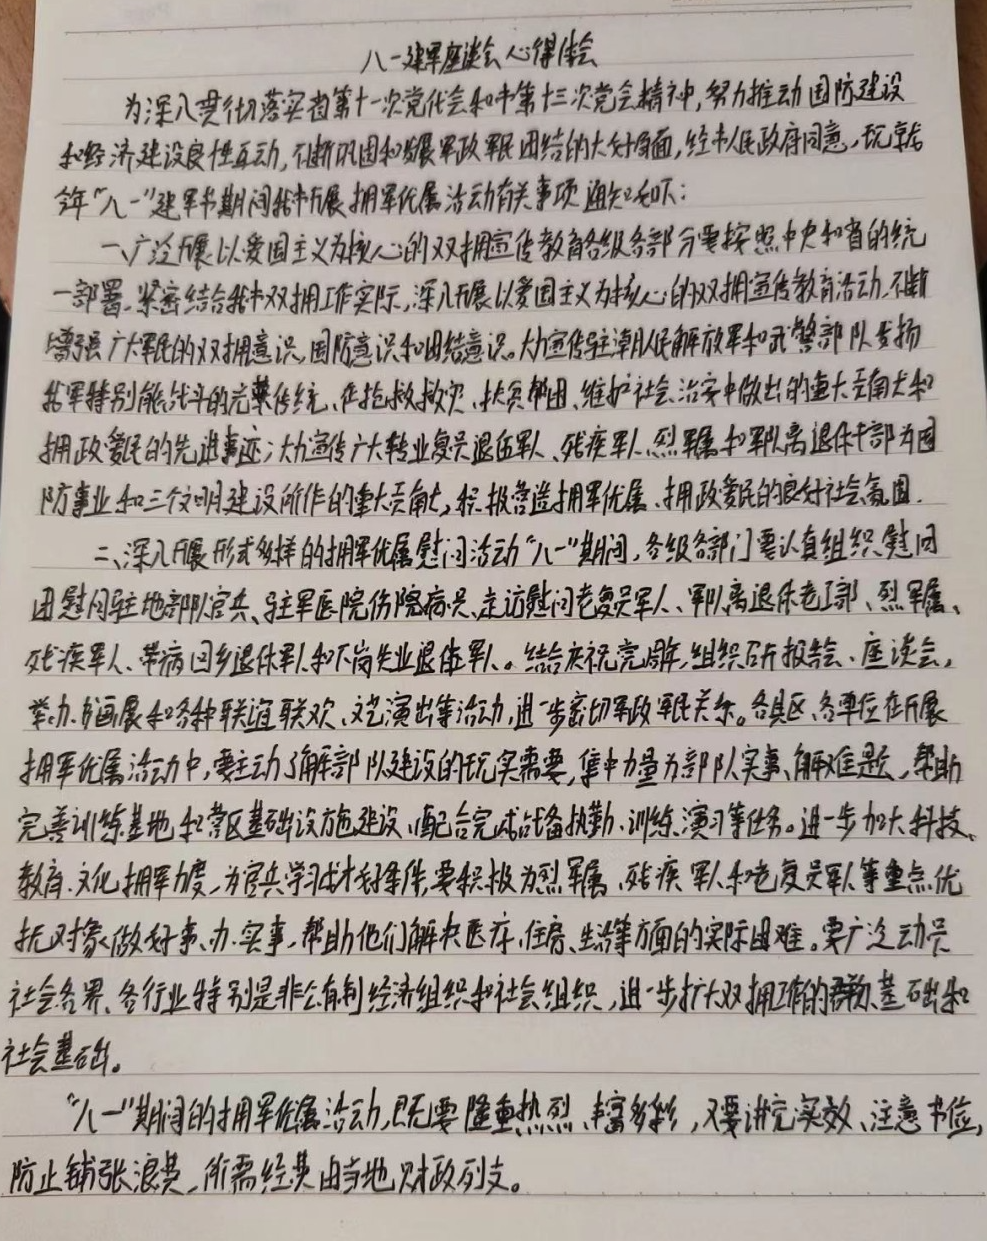 八一建军座谈会心得体会
为深入贯彻落实省第十一次党代会和市第十三次党会精神,努力推动国防建设
和经济建设良性互动,不断巩固和发展军政军民团结的大好局面,经市人民政府同意,现就
今年“八一”建军节期间我市开展拥军优属活动有关事项通知如下:
一、广泛开展以爱国主义为核心的双拥宣传教育各级各部分要按照中央和省的统
一部署、紧密结合我市双拥工作实际,深入开展以爱国主义为核心的双拥宣传教育活动,不断
增强广大军民的双拥意识、国防意识和团结意识。大力宣传驻潮人民解放军和武警部队发扬
我军特别能战斗的光荣传统、在抢救救灾、扶贫帮困、维护社会治安中做出的重大贡献和
拥政爱民的先进事迹;大力宣传广大转业复员退伍军人、残疾军人、烈军属和军队离退休干部为国
防事业和三个文明建设所作的重大贡献,积极营造拥军优属、拥政爱民的良好社会氛围.
二、深入开展形式多样的拥军优属慰问活动“八一”期间,各级各部门要认真组织慰问
团慰问驻地部队官兵、驻军医院伤病员、走访慰问老复员军人、军队离退休老干部、烈军属、
残疾军人、带病回乡退休军人和下岗失业退伍军人。结合庆祝完周年,组织召开报告会、座谈会,
举办书画展和各种联谊联欢、文艺演出等活动,进一步密切军政军民关系。各县区、各单位在开展
拥军优属活动中,要主动了解部队建设的现实需要,集中力量为部队实事、解难题,帮助
完善训练基地和营区基础设施建设,配合完成战备执勤、训练、演习等任务。进一步加大科技、
教育、文化拥军力度,为官兵学习成才创条件,要积极为烈军属、残疾军人和老复员军人等重点优
抚对象做好事、办实事,帮助他们解决医疗、住房、生活等方面的实际困难。要广泛动员
社会各界、各行业特别是非公有制经济组织和社会组织,进一步扩大双拥工作的群众基础和
社会基础。
“八一”期间的拥军优属活动,既要隆重热烈、丰富多彩,又要讲究实效、注意节位,
防止铺张浪费,所需经费由当地财政列支。